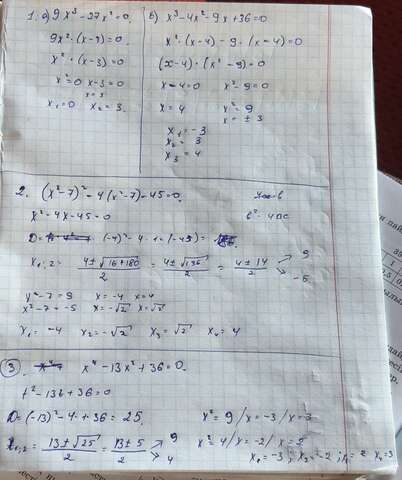 1. а) 9x³ - 27x² = 0.
9x² · (x - 3) = 0.
x² · (x - 3) = 0
x² = 0 x - 3 = 0
x = 3
x₁ = 0 x₂ = 3.
б) x³ - 4x² - 9x + 36 = 0
x² · (x - 4) - 9 · (x - 4) = 0
(x - 4) · (x² - 9) = 0
x - 4 = 0 x² - 9 = 0
x = 4 x² = 9
x = ± 3
x₁ = -3
x₂ = 3
x₃ = 4
2. (x² - 7)² - 4(x² - 7) - 45 = 0.
x² - 4x - 45 = 0
b² - 4ac
D = (-4)² - 4 · 1 · (-45) =
x₁,₂ = (4 ± √16 + 180)/2 = (4 ± √196)/2 = (4 ± 14)/2 → 9 → -5
x² - 7 = 9 x = -4 x = 4
x² - 7 = -5 x = -√2 x = √2
x₁ = -4 x₂ = -√2 x₃ = √2 x₄ = 4
3. x⁴ - 13x² + 36 = 0.
t² - 13t + 36 = 0
D = (-13)² - 4 · 36 = 25.
x₁,₂ = (13 ± √25)/2 = (13 ± 5)/2 → 9 → 4
x² = 9 / x = -3 / x = 3
x² = 4 / x = -2 / x = 2
x₁ = -3; x₂ = -2; x₃ = 2 x₄ = 3